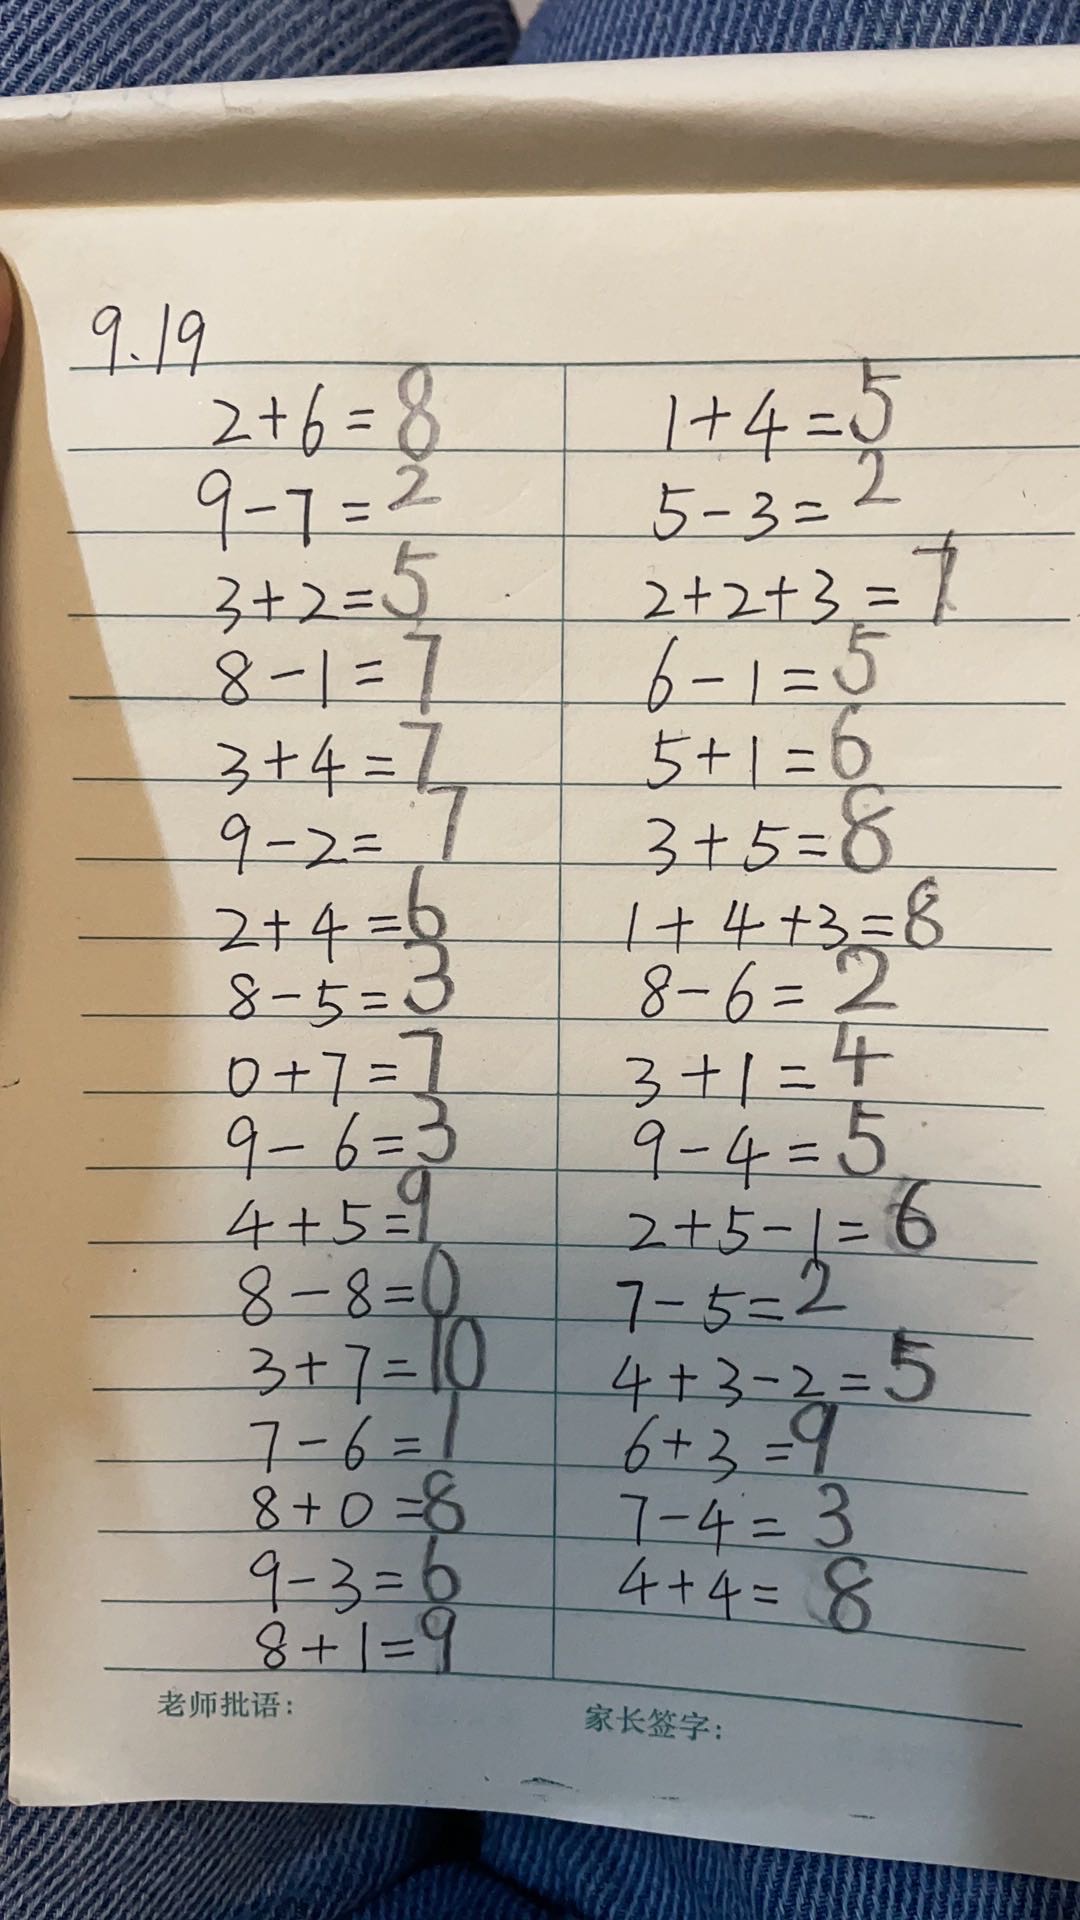 9.19
2+6=8
9-7=2
3+2=5
8-1=7
3+4=7
9-2=7
2+4=6
8-5=3
0+7=7
9-6=3
4+5=9
8-8=0
3+7=10
7-6=1
8+0=8
9-3=6
8+1=9
1+4=5
5-3=2
2+2+3=7
6-1=5
5+1=6
3+5=8
1+4+3=8
8-6=2
3+1=4
9-4=5
2+5-1=6
7-5=2
4+3-2=5
6+3=9
7-4=3
4+4=8
老师批语:
家长签字: